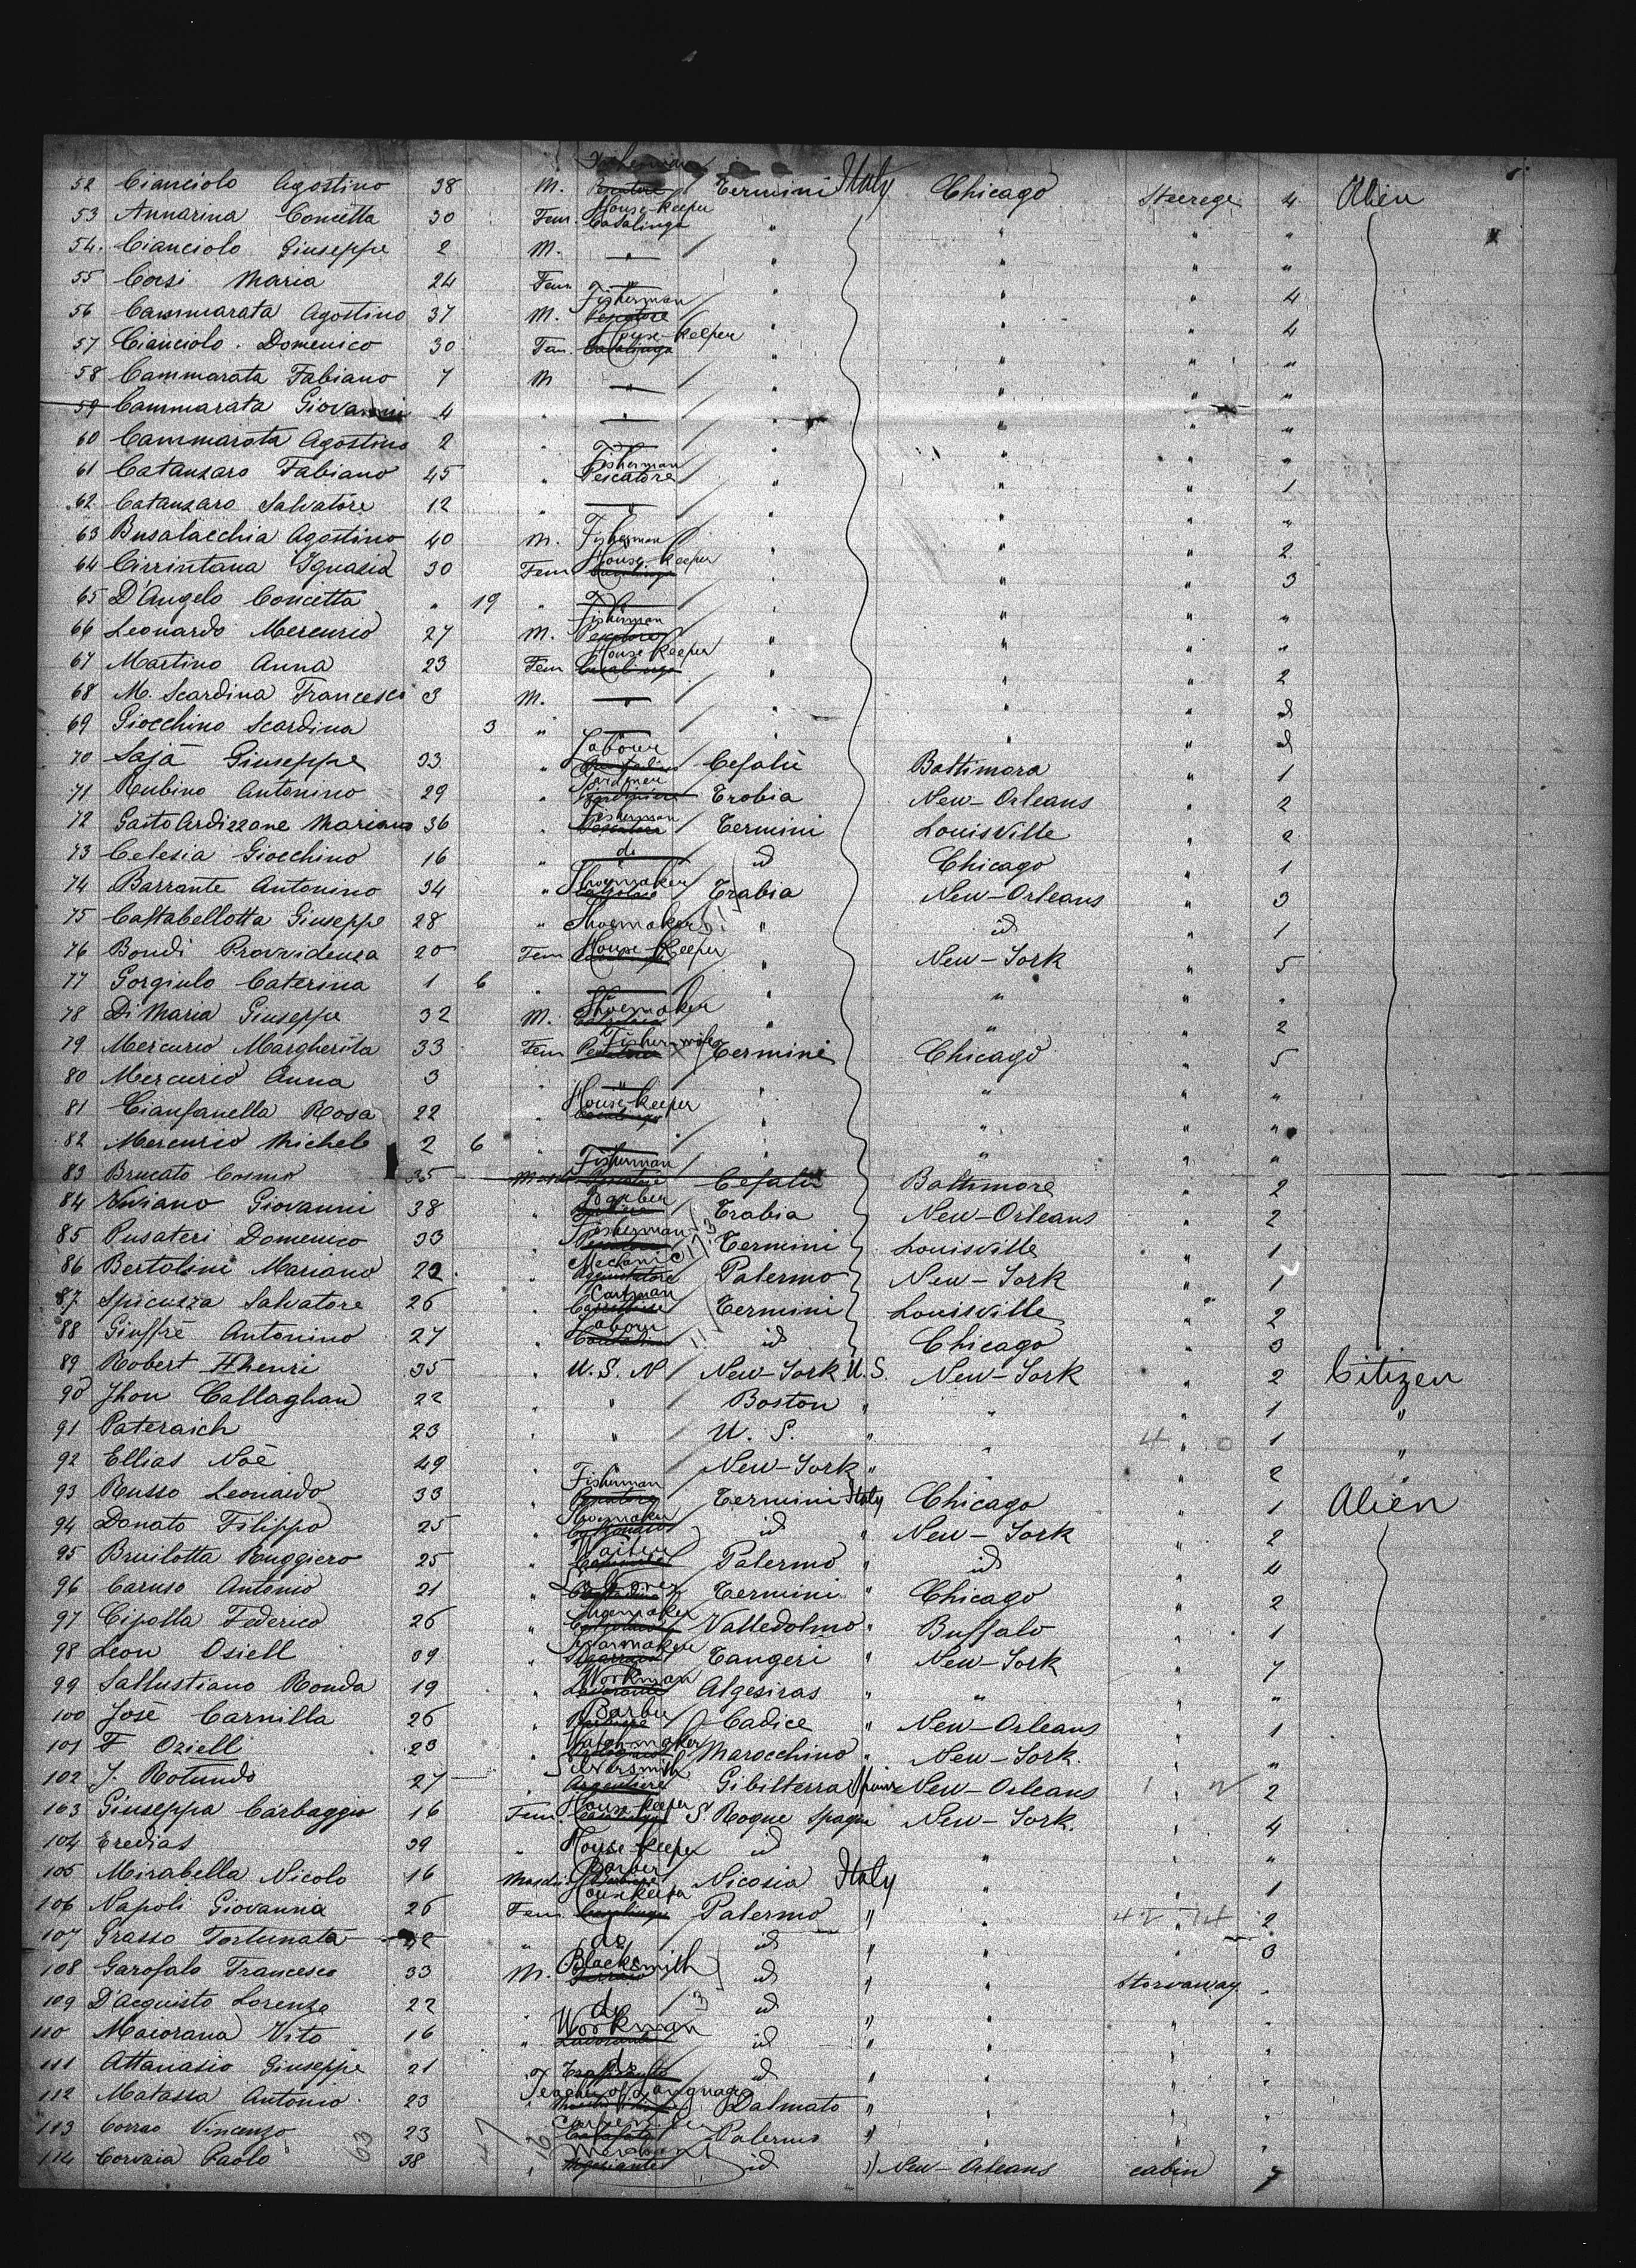 52 Cianciolo Agostino 38 M. Fisherman Termini Italy Chicago Steerege 4 Alien
53 Annarina Concetta 30 Fem. House-Keeper Casalinga " " " "
54. Cianciolo Giuseppe 2 M. " " " " "
55 Corsi Maria 24 Fem " " " " 4
56 Cammarata Agostino 37 M. Fisherman Pescatore " " " 4
57 Cianciolo. Domenico 30 Fem. House-Keeper Casalinga " " " "
58 Cammarata Fabiano 7 M " " " " "
59 Cammarata Giovanni 4 " " " " " "
60 Cammarata Agostino 2 " " " " "
61 Catanzaro Fabiano 45 " Fisherman Pescatore " " " 1
62 Catanzaro Salvatore 12 " " " " " "
63 Busalacchia Agostino 40 M. Fisherman " " " 2
64 Cirrintana Ignazia 30 Fem House-Keeper " " " 3
65 D'Angelo Concetta " 19 " " " " "
66 Leonardo Mercurio 27 M. Fisherman Pescatore " " " "
67 Martino Anna 23 Fem House Keeper Casalinga " " " 2
68 M. Scardina Francesco 3 M. " " " " id
69 Giocchino Scardina 3 " " " " id
70 Sajà Giuseppe 33 " Labour Cefalù Baltimora " 1
71 Rubino Antonino 29 " Gardener Giardiniere Trobia New-Orleans " 2
72 Gaito Ardizzane Mariano 36 " Fisherman Pescatore Termini Louisville " 2
73 Celesia Giocchino 16 " do id Chicago " 1
74 Barrante Antonino 34 " Shoemaker Trabia New-Orleans " 3
75 Castabellotta Giuseppe 28 " Shoemaker " id " 1
76 Bondì Provvidenza 20 Fem House-Keeper " New-York " 5
77 Gorgiulo Caterina 1 6 " " " " "
78 Di Maria Giuseppe 32 M. Shoemaker " " " 2
79 Mercurio Margherita 33 Fem Fisherwife Termini Chicago " 5
80 Mercurio Anna 3 " " " " " "
81 Cianfanella Rosa 22 House-Keeper " " " "
82 Mercurio Michele 2 6 " " " " "
83 Brucato Cosmo 35 Fisherman Pescatore Cefalù Baltimore " 2
84 Viviano Giovanni 38 " Barber Trabia New-Orleans " 2
85 Pusateri Domenico 33 " Fisherman Termini Louisville " 1
86 Bertolini Mariano 22 " Mechanic Palermo New-York " 1
87 Spicuzza Salvatore 26 " Cartman Termini Louisville " 2
88 Giuffrè Antonino 27 " Labour id Chicago " 3
89 Robert Hhenri 35 " U.S.N New-York U.S. New-York " 2 Citizen
90 Jhon Callaghan 22 " " Boston " " " 1 "
91 Pateraich 23 " " U.S. " " " 1 "
92 Ellias Noè 49 " " New-York " " " 2 "
93 Russo Leonardo 33 " Fisherman Pescatore Termini Italy Chicago " 1 Alien
94 Donato Filippo 25 " Shoemaker id " New-York " 2
95 Bruilotta Ruggiero 25 " Waiter Palermo " id " 4
96 Caruso Antonio 21 " Termini " Chicago " 2
97 Cipolla Federico 26 " Shoemaker Valledolmo " Buffalo " 1
98 Leon Osiell 39 " Tangeri " New-York " 7
99 Sallustiano Ronda 19 " Workman Lavorante Algesiras " " " "
100 José Carnilla 26 " Barber Cadice " New-Orleans " 1
101 F Oziell 23 " Watchmaker Marocchino " New-York. " "
102 J. Rotundo 27 " Silversmith Argentiere Gibilterra New-Orleans " 2
103 Giuseppa Carbaggio 16 Fem. House-Keeper Casalinga S. Roque Spagne New-York. " 4
104 Eredias 39 " House-Keeper id " " "
105 Mirabella Nicolo 16 Barber Nicosia Italy " " 1
106 Napoli Giovanna 26 Fem House Keeper Casalinga Palermo " " " 2
107 Grasso Fortunata 42 " do id " " " 3
108 Garofalo Francesco 33 M. Blacksmith id " " Storvaway
109 D'Acquisto Lorenzo 22 " do id " " "
110 Maiorana Vito 16 " Workman Lavorante id " " "
111 Attanasio Giuseppe 21 " do id " " "
112 Matassa Antonio 23 " Teacher of Language Dalmato " " "
113 Corrao Vincenzo 23 Palermo " " "
114 Corvaia Paolo 38 " Merchant Negoziante id " New-Orleans cabin 7